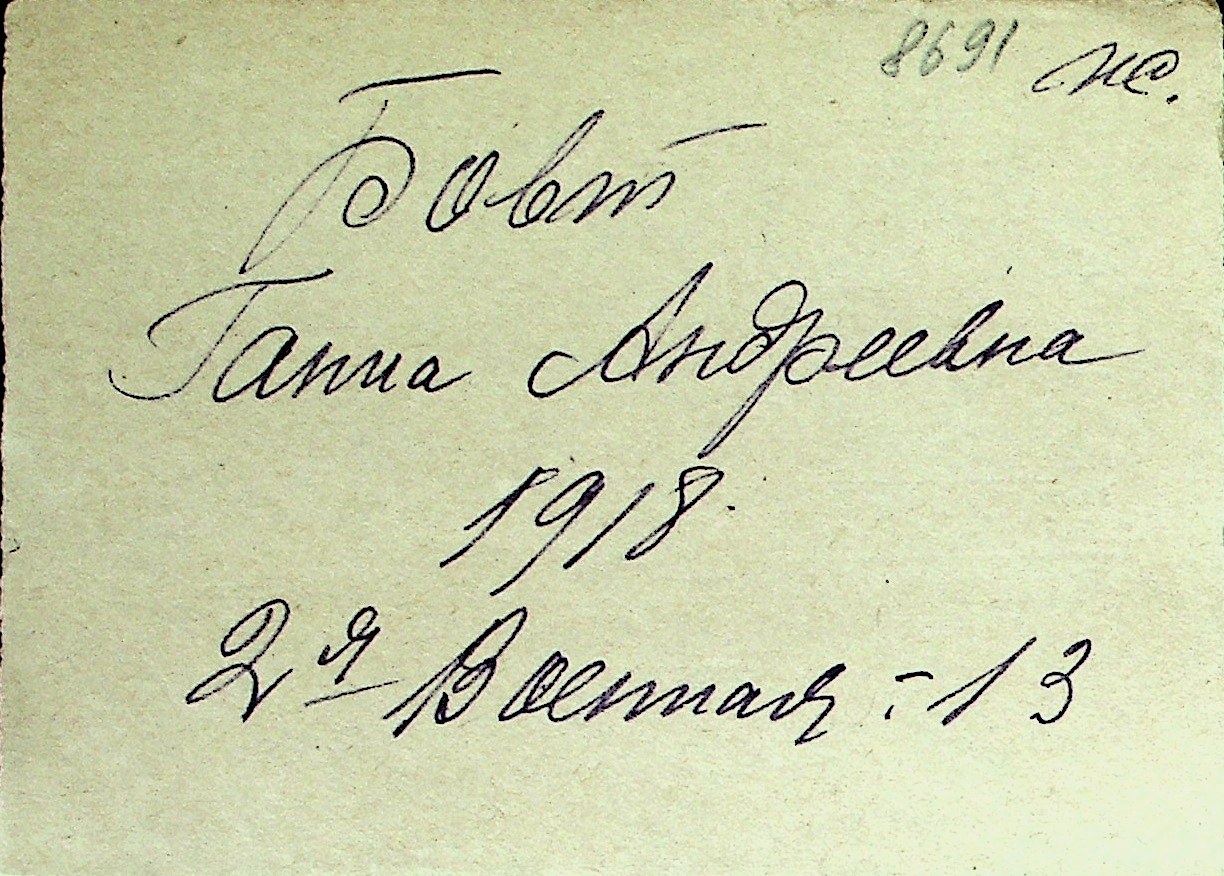 8691 ж.
Бовт
Ганна Андреевна
1918.
2я Военная - 13